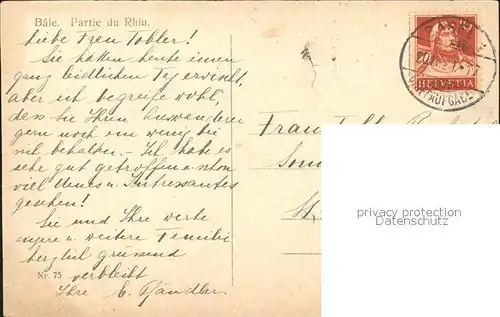 Bâle. Partie du Rhin.
Liebe Frau Tobler!
Sie hatten heute einen
ganz leidlichen Tag erwischt,
aber ich begreife wohl,
dass Sie Ihren Auswanderer
gern noch ein wenig bei
sich behalten. - Ich habe es
sehr gut getroffen u. schon
viel Neues u. Interessantes
gesehen!
Sie und Ihre werte
engere u. weitere Familie
herzlich grüssend
verbleibt
Ihre E. Pfändler.
Nr. 75
Frau
HELVETIA
BASEL
BRIEFAUFGABE
privacy protection
Datenschutz